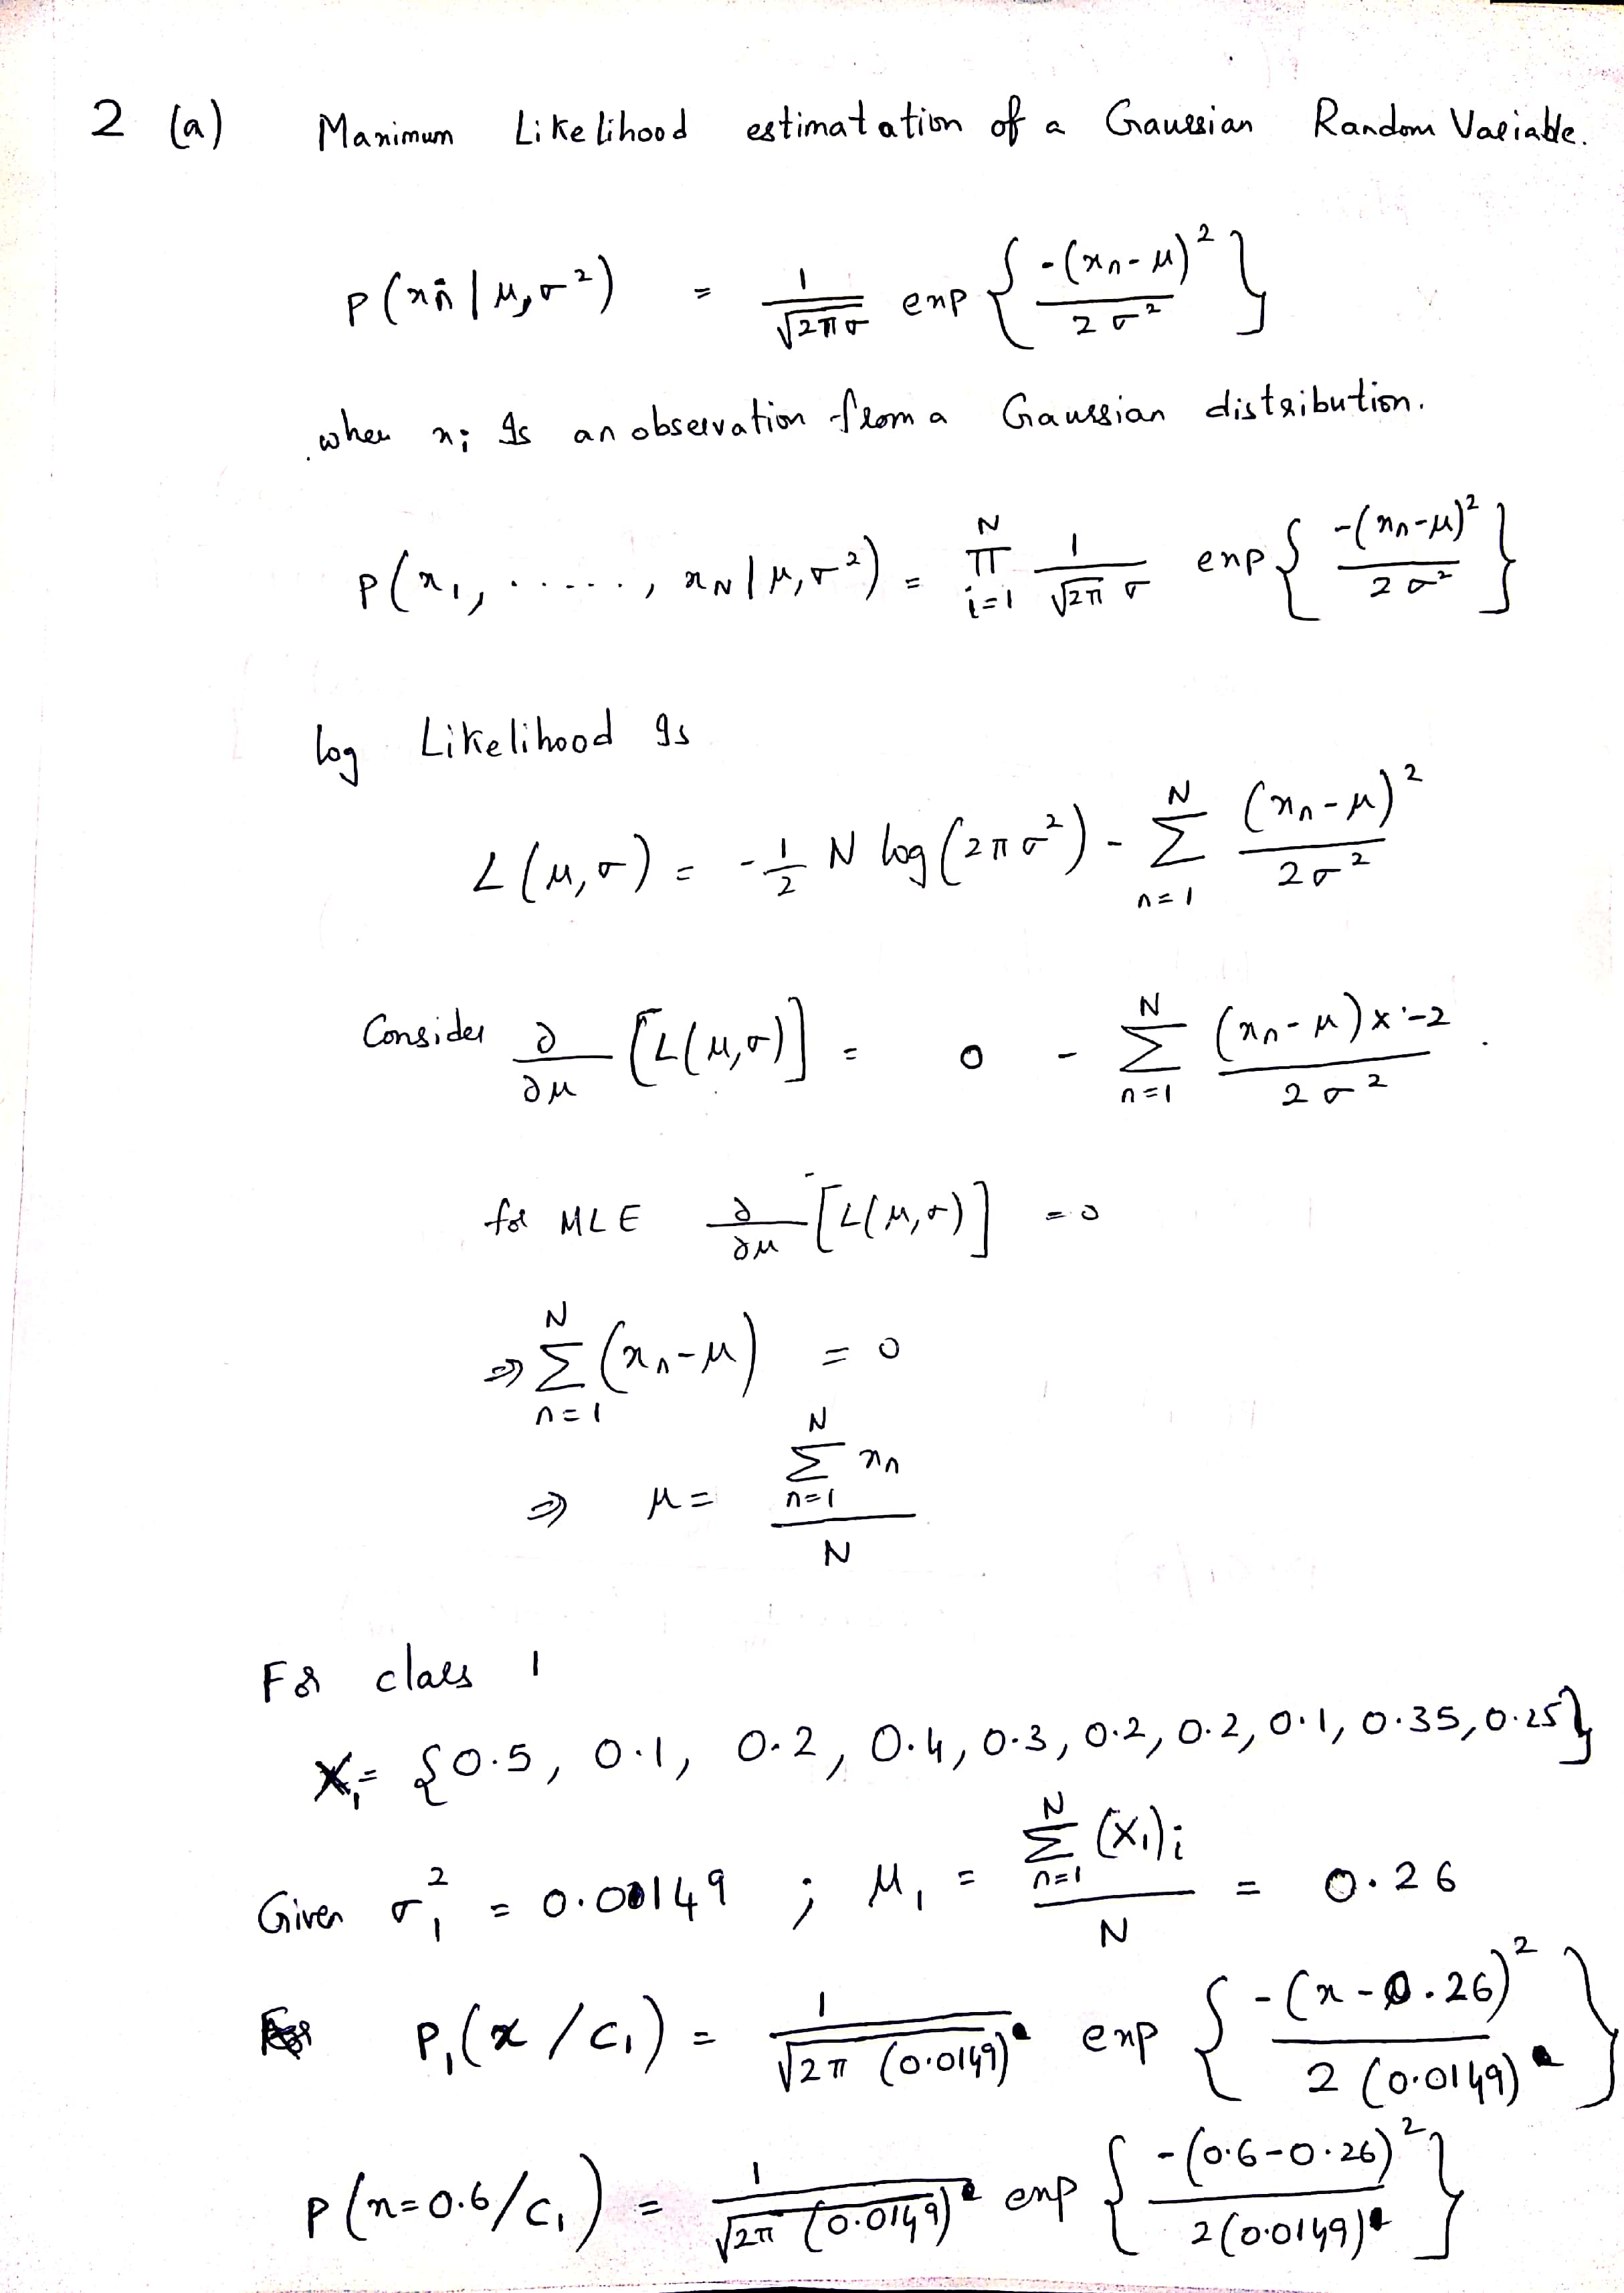 2 (a) Maximum Likelihood estimatation of a Gaussian Random Variable.
P(xn | μ, σ²) = 1/√(2πσ) exp { -(xn-μ)² / 2σ² }
when xi Is an observation from a Gaussian distribution.
P(x1, ......, xN | μ, σ²) = N π i=1 1/(√2π σ) exp { -(xn-μ)² / 2σ² }
log Likelihood Is
L(μ, σ) = -1/2 N log (2πσ²) - N Σ n=1 (xn-μ)² / 2σ²
Consider ∂/∂μ [L(μ,σ)] = 0 - N Σ n=1 (xn-μ) x -2 / 2σ²
for MLE ∂/∂μ [L(μ,σ)] = 0
⇒ N Σ n=1 (xn-μ) = 0
⇒ μ = N Σ n=1 xn / N
For class 1
X1 = {0.5, 0.1, 0.2, 0.4, 0.3, 0.2, 0.2, 0.1, 0.35, 0.25}
Given σ1² = 0.00149 ; μ1 = N Σ n=1 (X1)i / N = 0.26
P1(x/C1) = 1/√(2π (0.0149)) exp { -(x-0.26)² / 2(0.0149) }
P(x=0.6/C1) = 1/√(2π (0.0149)) exp { -(0.6-0.26)² / 2(0.0149) }